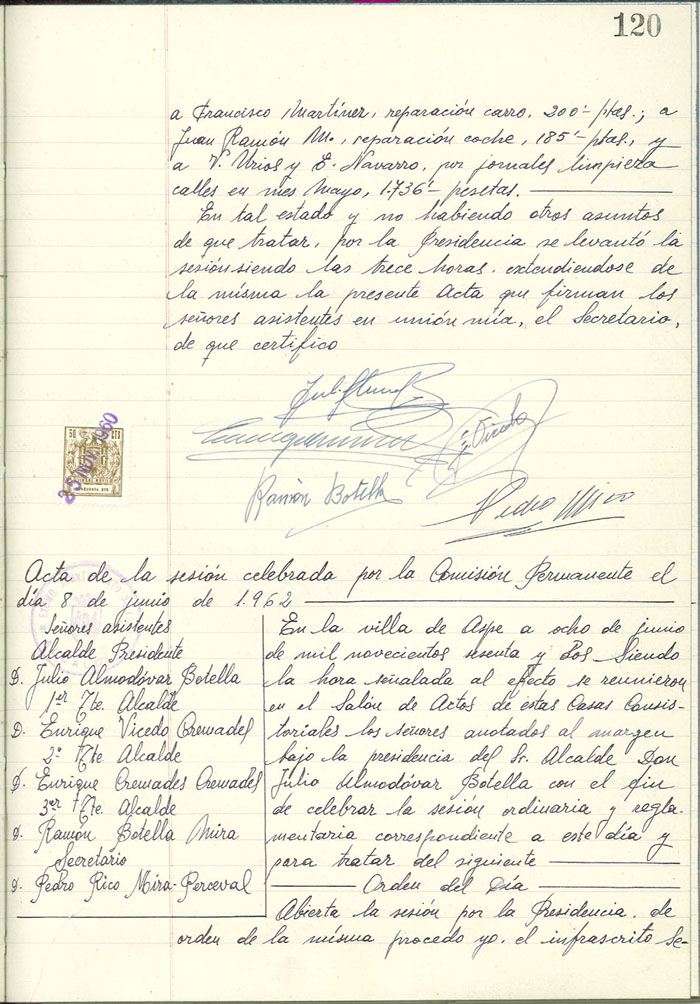 120
a Francisco Martínez, reparación carro, 200'- ptas.; a
Juan Ramón M., reparación coche, 185'- ptas., y
a V. Urios y E. Navarro, por jornales limpieza
calles en mes Mayo, 1.736'- pesetas.
En tal estado y no habiendo otros asuntos
de que tratar, por la Presidencia se levantó la
sesión siendo las trece horas, extendiendose de
la misma la presente Acta que firman los
señores asistentes en unión mía, el Secretario,
de que certifico
E. Vicedo
50 CTS
25 NOV. 1960
Ramón Botella
Pedro Rico
Acta de la sesión celebrada por la Comisión Permanente el
día 8 de junio de 1.962
Señores asistentes
Alcalde Presidente
D. Julio Almodóvar Botella
1er Tte. Alcalde
D. Enrique Vicedo Cremades
2º Tte Alcalde
D. Enrique Cremades Cremades
3er Tte. Alcalde
D. Ramón Botella Mira
Secretario
D. Pedro Rico Mira-Perceval
En la villa de Aspe a ocho de junio
de mil novecientos sesenta y dos Siendo
la hora señalada al efecto se reunieron
en el Salón de Actos de estas Casas Consis-
toriales los señores anotados al margen
bajo la presidencia del Sr. Alcalde Don
Julio Almodóvar Botella con el fin
de celebrar la sesión ordinaria y regla-
mentaria correspondiente a este día y
para tratar del siguiente
Orden del Día
Abierta la sesión por la Presidencia, de
orden de la misma procedo yo, el infrascrito Se-